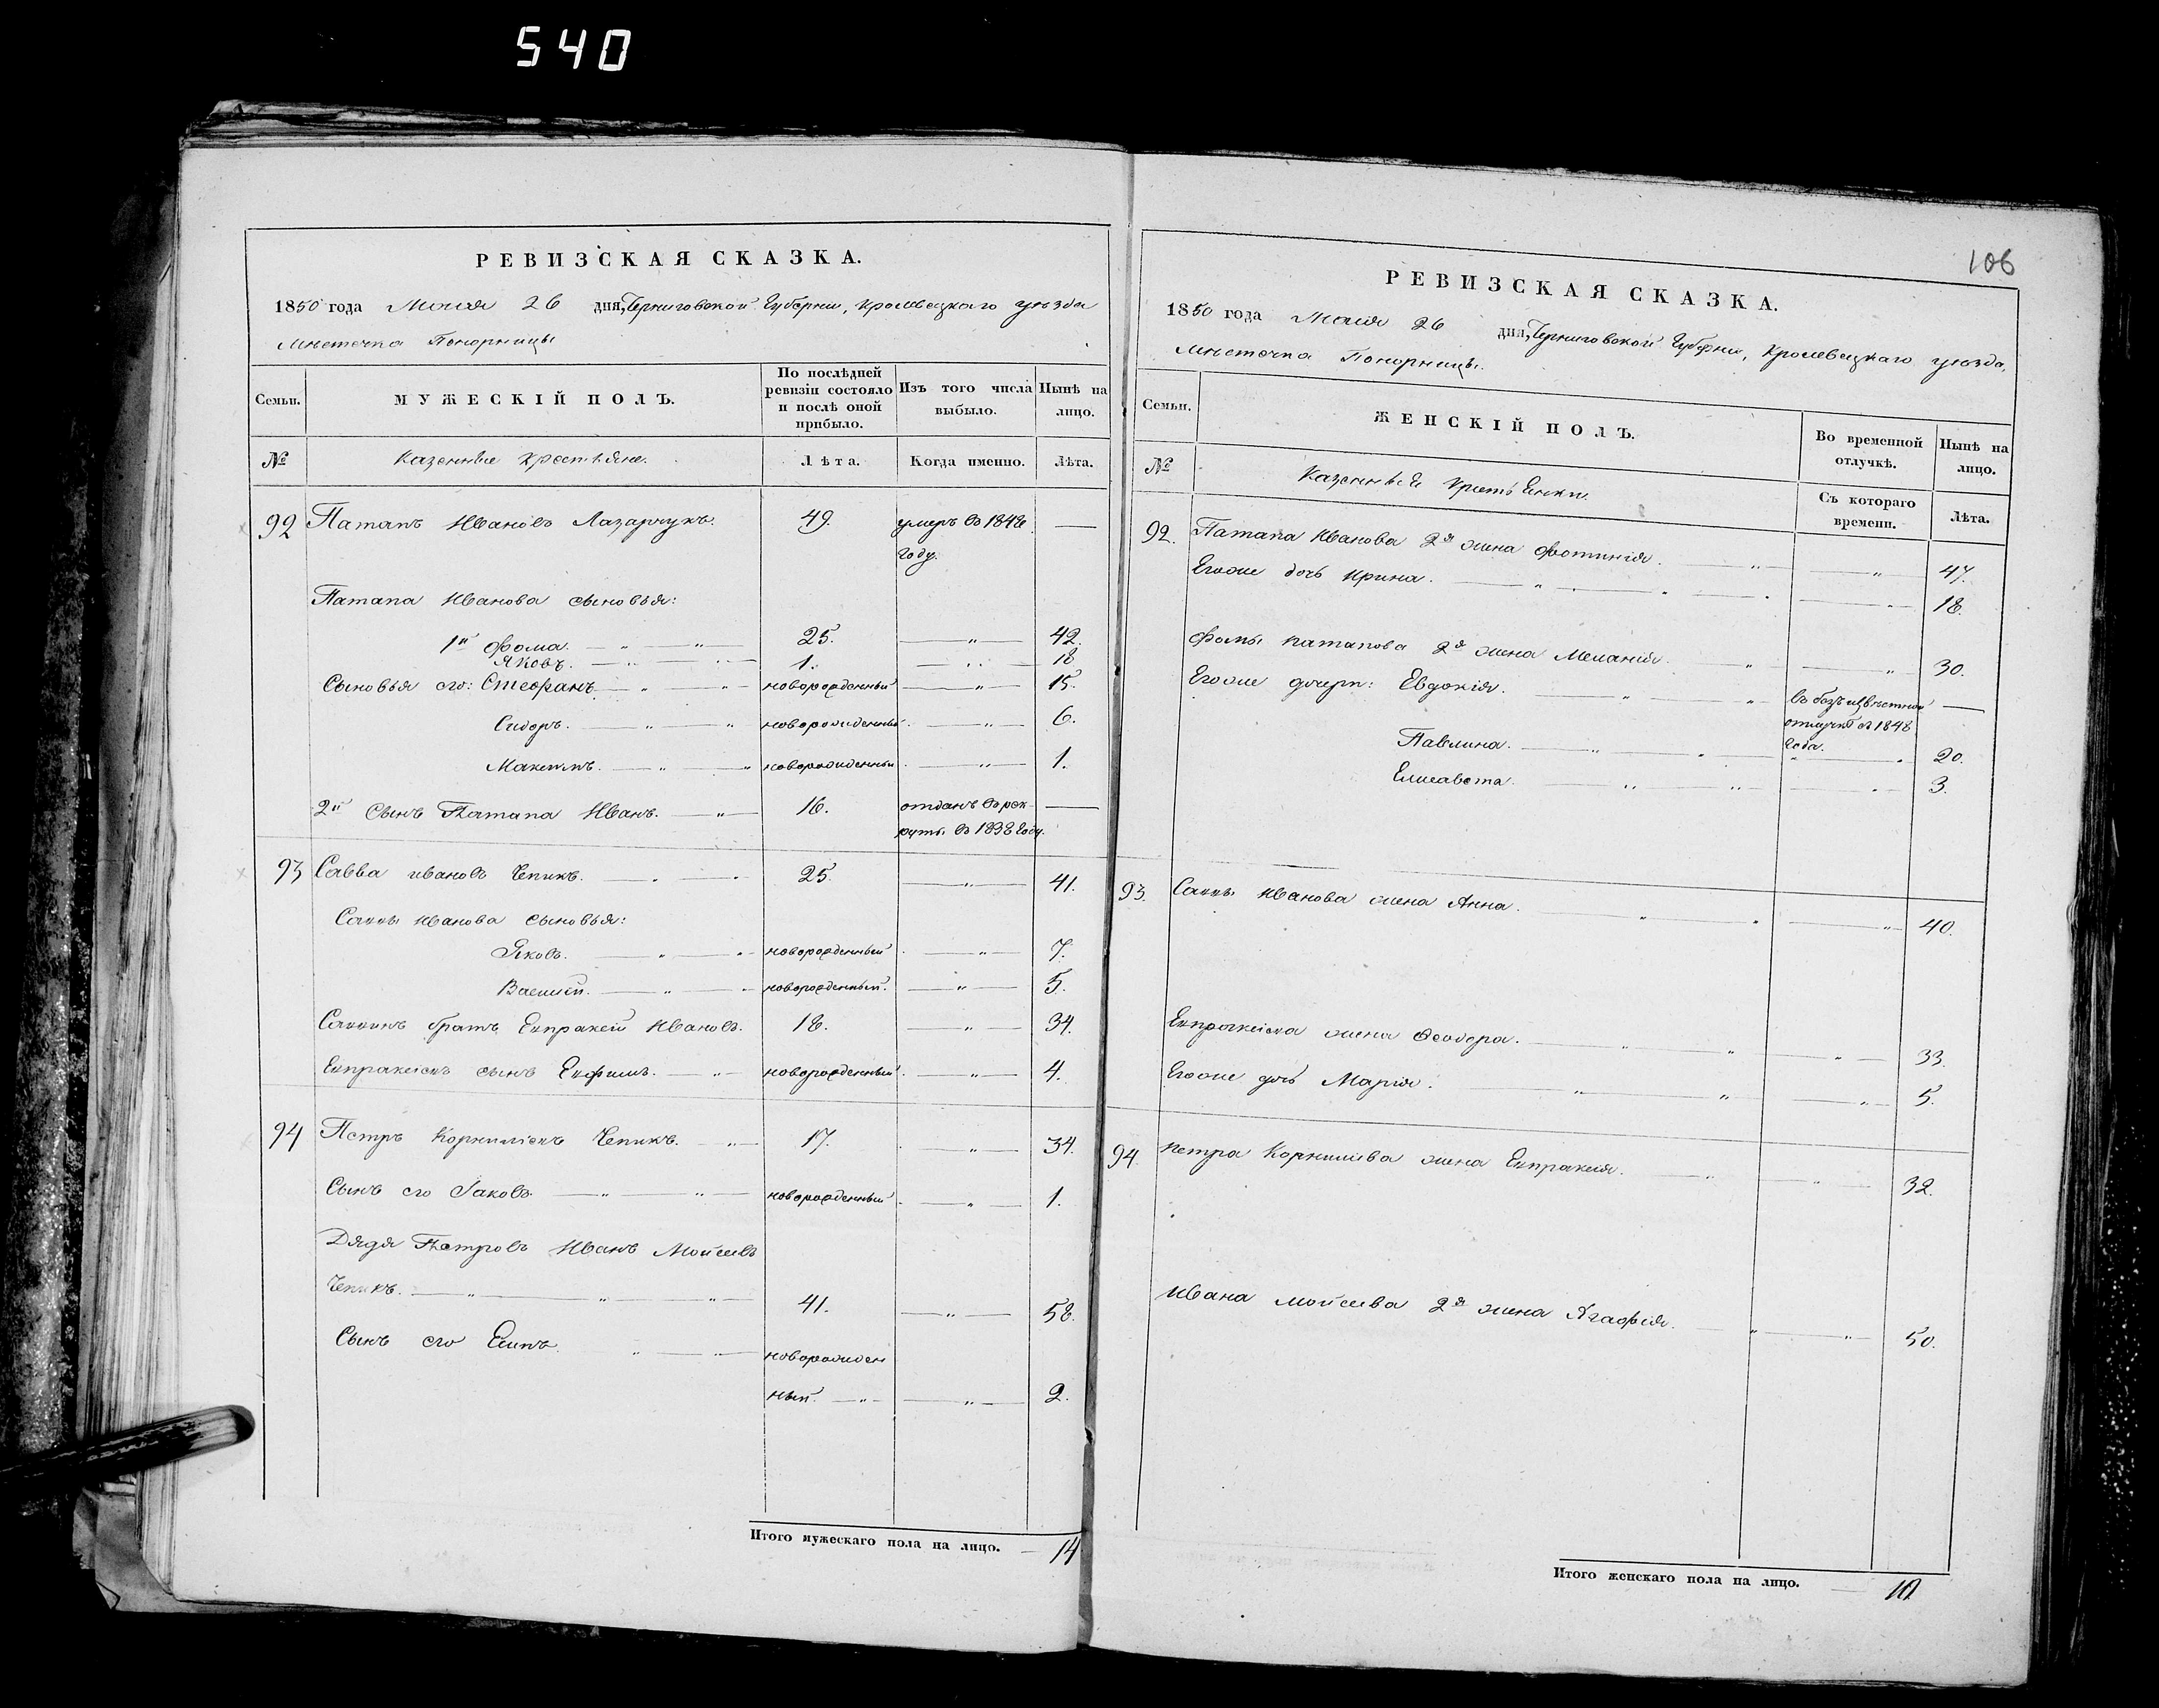 540
РЕВИЗСКАЯ СКАЗКА.
1850 года Маія 26 дня, Черниговской Губерніи, Кролевецкаго уѣзда
Мѣстечка Понорницы
Семьи.
МУЖЕСКІЙ ПОЛЪ.
По послѣдней ревизіи состояло и послѣ оной прибыло.
Изъ того числа выбыло.
Нынѣ на лицо.
№ Казенные крестьяне. Лѣта. Когда именно. Лѣта.
92 Патапъ Ивановъ Лазарчукъ. 49. умеръ въ 1848
году.
Патапа Иванова сыновья:
1й Фома. — " — " — 25. — " — 42.
Яковъ. — " — " — 1. — " — 18
Сыновья его: Стефанъ — " — " — новорожденный — " — 15.
Сидоръ. — " — " новорожденный — " — 6.
Максимъ. — " — " новорожденный — " — 1.
2й Сынъ Патапа Иванъ. — " — 16. отданъ въ рек
руты въ 1838 году.
93 Савва ивановъ Чепикъ. — " — " 25. — " — 41.
Саввы иванова сыновья:
Яковъ. — " — " новорожденный — " — 7.
Василій. — " — " новорожденный. — " — 5.
Саввинъ братъ Евпраксій Ивановъ. 18. — " — 34.
Евпраксіевъ сынъ Евфимъ. — " — новорожденный — " — 4.
94 Петръ Корниліевъ Чепикъ. — " — 17. — " — 34.
Сынъ его Іаковъ. — " — " — новорожденный — " — 1.
Дядя Петровъ Иванъ Мойсеевъ
Чепикъ. — " — " — " — 41. — " — 58.
Сынъ его Есипъ. " — " — новорожден
ный. — " — — " — 2.
Итого мужескаго пола на лицо. — 14
106
РЕВИЗСКАЯ СКАЗКА.
1850 года Маія 26 дня, Черниговской Губерніи, Кролевецкаго уѣзда,
Мѣстечка Понорницы.
Семьи.
ЖЕНСКІЙ ПОЛЪ.
Во временной отлучкѣ.
Нынѣ на лицо.
№ Казенныя крестьянки. Съ котораго времени. Лѣта.
92. Патапа Иванова 2я жена Фотинія. — " — " — 47.
Егоже дочь Ирина. — " — " — " — 18.
Фомы патапова 2я жена Меланія. — " — " — 30.
Егоже дочери: Евдокія. — " — " въ безъизвѣстной —
отлучкѣ съ 1848
года.
Павлина. — " — " — " 20.
Елисавета. — " — " — " — 3.
93. Саввы Иванова жена Анна. — " — " — " — 40.
Евпраксіева жена Феодора. — " — " — " — 33.
Егоже дочь Марія. — " — " — " — 5.
94. петра Корниліева жена Евпраксія. — " — " — 32.
Ивана мойсеева 2я жена Агафія. — " — " — 50.
Итого женскаго пола на лицо. — 10